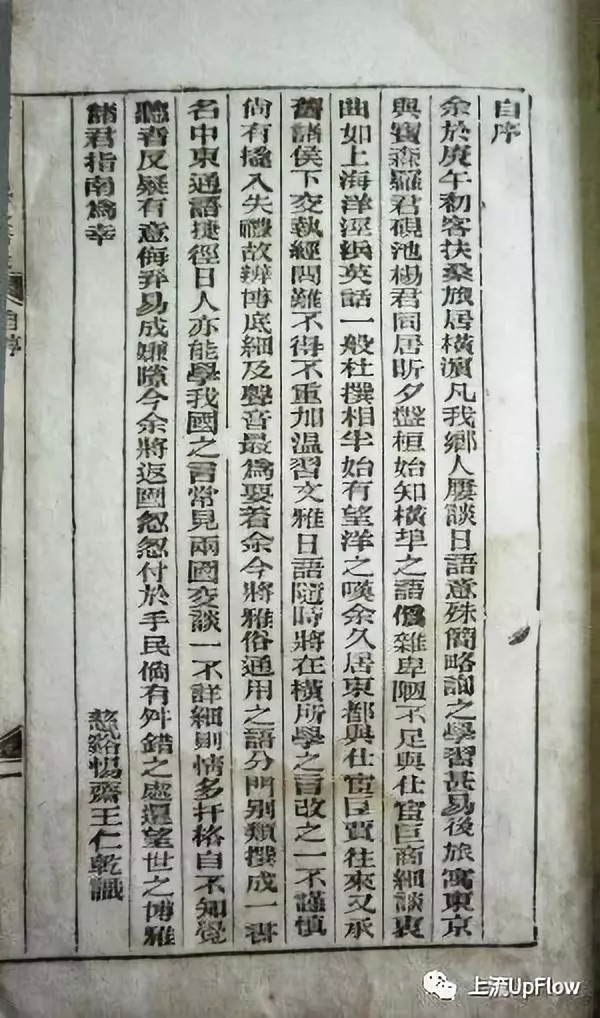 自序
余於庚午初客扶桑旅居橫濵凡我鄉人屢談日語意殊簡略詢之學習甚易後旅寓東京
與寶森羅君硯池楊君同居昕夕盤桓始知橫埠之語僞雜卑陋不足與仕宦巨商細談衷
曲如上海洋涇浜英話一般杜撰相半始有望洋之嘆余久居東都與仕宦巨賈往來又承
舊諸侯下交執經問難不得不重加温習文雅日語隨時將在橫所學之言改之一不謹慎
尙有攙入失禮故辨博底細及聲音最爲要着余今將雅俗通用之語分門別類撰成一書
名中東通語捷徑日人亦能學我國之言常見兩國交談一不詳細則情多扞格自不知覺
聽者反疑有意侮弄易成嫌隙今余將返國怱怱付於手民倘有舛錯之處還望世之博雅
諸君指南爲幸
慈谿惕齋王仁乾識
自序
上流UpFlow